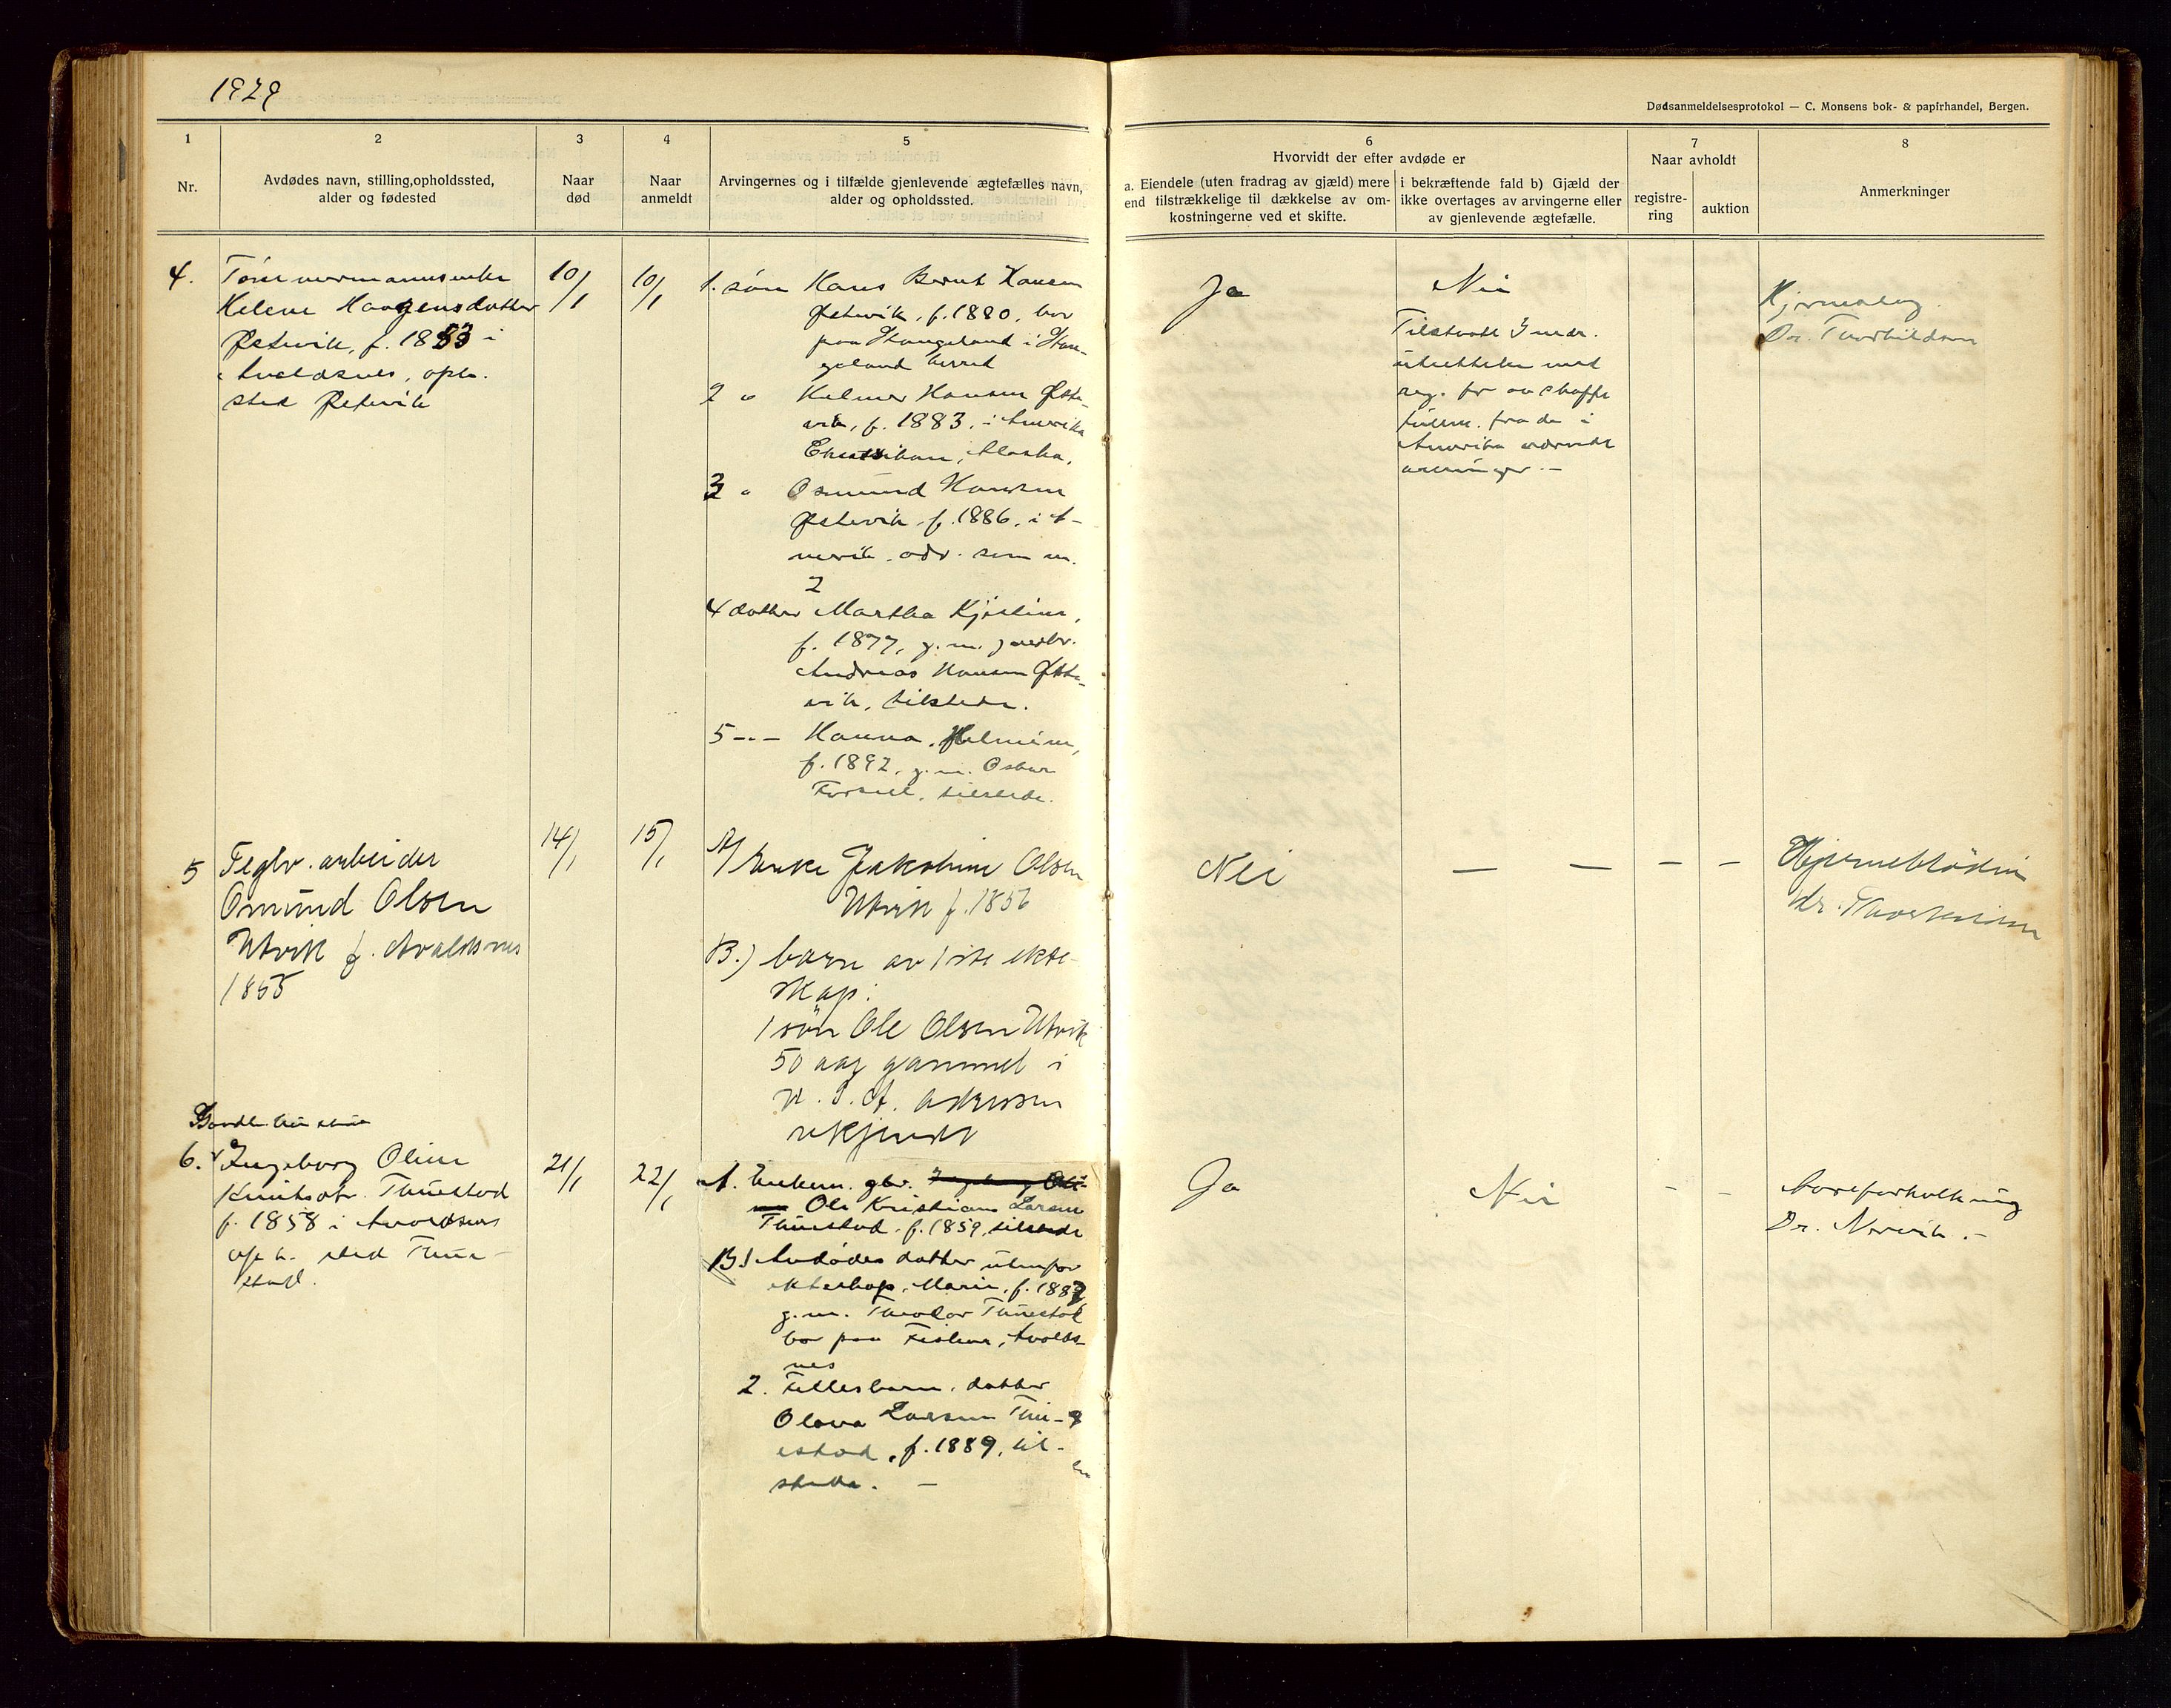 1929
Dødsanmeldelsesprotokol — C. Monsens bok- & papirhandel, Bergen.
1
2
3
4
5
6
7
8
Nr.
Avdødes navn, stilling, opholdssted,
alder og fødested
Naar
død
Naar
anmeldt
Arvingernes og i tilfælde gjenlevende ægtefælles navn,
alder og opholdssted.
Hvorvidt der efter avdøde er
a. Eiendele (uten fradrag av gjæld) mere
end tilstrækkelige til dækkelse av om-
kostningerne ved et skifte.
i bekræftende fald b) Gjæld der
ikke overtages av arvingerne eller
av gjenlevende ægtefælle.
Naar avholdt
registre-
ring
auktion
Anmerkninger
4.
Tømmermannsenke
Helene Haagensdatter
Østevik, f. 1853 i
Avaldsnes, oph.
sted Østevik
10/1
10/1
1. søn Hans Bernt Hansen
Østevik, f. 1880, bor
paa Stangeland i Stan-
geland herred
2 " Helmer Hansen Øste-
vik, f. 1883, i Amerika
Alaska,
3 " Osmund Hansen
Østevik, f. 1886, i A-
merik. adr. som n.
2
4 datter Martha Kjistine,
f. 1877, g.m. gardbr.
Andreas Hansen Øste-
vik, tilstede.
5 -"- Hanna Helmine,
f. 1892, g.m. Oskar
tilstede.
Ja
Nei
Tilstodt 3 mdr.
utsettelse med
reg. for aa skaffe
fullm. fra de i
Amerika værende
arvinger. —
Dr. Thorkildsen
5
Teglv. arbeider
Osmund Olsen
Utvik f. Avaldsnes
1855
14/1
15/1
A/ Enke Jakobine Olsen
Utvik f. 1856
B.) barn av 1ste ekte-
skap:
1 søn Ole Olsen Utvik
50 aar gammel i
U.S.A. adressen
ukjendt
Nei
— — — —
Hjerneblødn
dr. Thorkildsen
6.
Ingeborg Oline
Knutsdtr. Thuestad
f. 1858 i Avaldsnes
oph. sted Thue-
stad.
21/1
22/1
A. Enkem. gbr.
Ole Kristian Larsen
Thuestad, f. 1859, tilstede
B.) Avdødes datter utenfor
ekteskap, Marie, f. 1882
g.m. Theodor Thuestad
bor paa Fiskaa, Avalds-
nes
2. Fellesbarn, datter
Olava Larsen Thu-
estad, f. 1889, til-
stede. —
Ja
Nei
- -
Aareforkalkning
Dr. Norvik. -